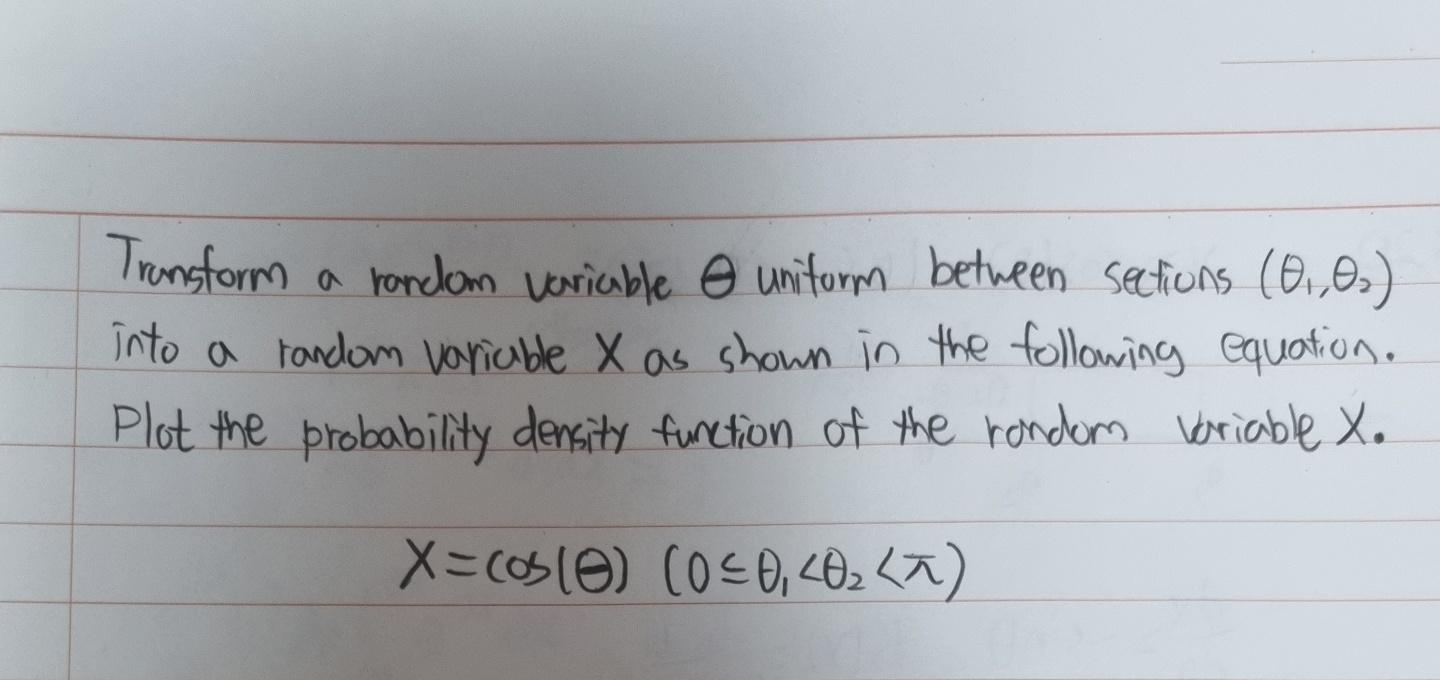 Transform a random variable Θ uniform between sections (θ₁,θ₂)
into a random variable X as shown in the following equation.
Plot the probability density function of the random variable X.
X=cos(Θ) (0≤θ₁<θ₂<π)